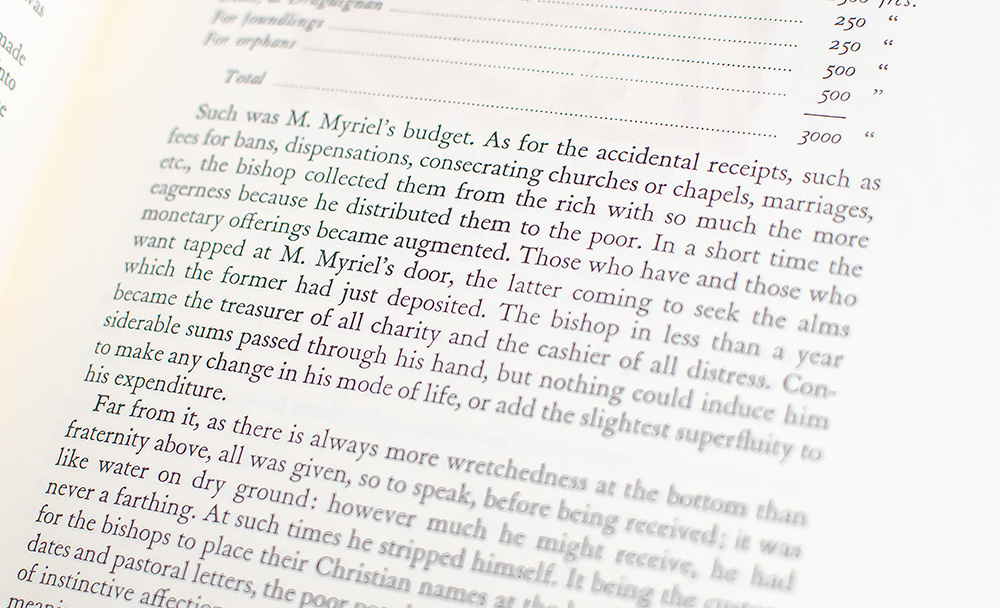 as
made
nto
e
500 frs.
at Draguignan 250 “
For foundlings 250 “
For orphans 500 “
500 ”
Total 3000 “
Such was M. Myriel’s budget. As for the accidental receipts, such as
fees for bans, dispensations, consecrating churches or chapels, marriages,
etc., the bishop collected them from the rich with so much the more
eagerness because he distributed them to the poor. In a short time the
monetary offerings became augmented. Those who have and those who
want tapped at M. Myriel’s door, the latter coming to seek the alms
which the former had just deposited. The bishop in less than a year
became the treasurer of all charity and the cashier of all distress. Con-
siderable sums passed through his hand, but nothing could induce him
to make any change in his mode of life, or add the slightest superfluity to
his expenditure.
Far from it, as there is always more wretchedness at the bottom than
fraternity above, all was given, so to speak, before being received; it was
like water on dry ground: however much he might receive, he had
never a farthing. At such times he stripped himself. It being the
for the bishops to place their Christian names at the
dates and pastoral letters, the poor
of instinctive affection